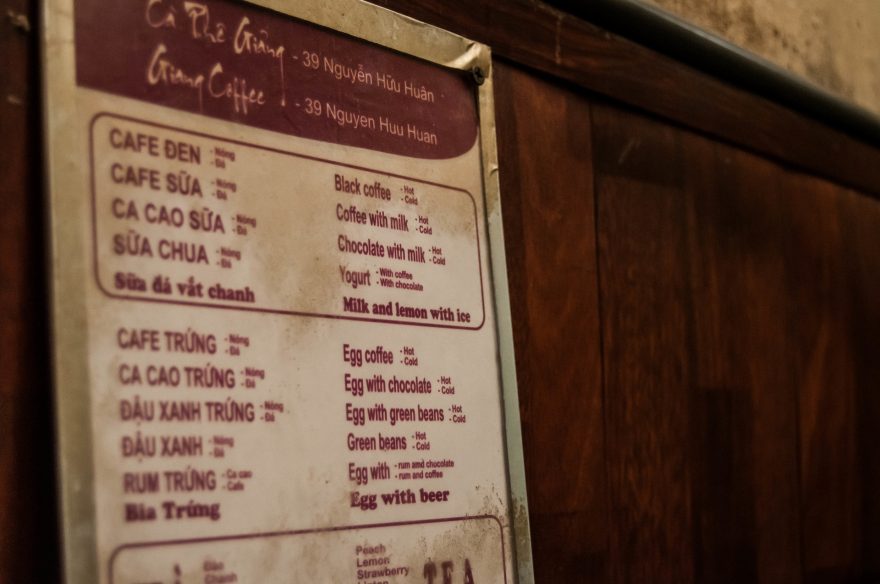 Cà Phê Giảng - 39 Nguyễn Hữu Huân
Giang Coffee - 39 Nguyen Huu Huan
CAFE ĐEN - Nóng - Đá
CAFE SỮA - Nóng - Đá
CA CAO SỮA - Nóng - Đá
SỮA CHUA - Nóng - Đá
Sữa đá vắt chanh
Black coffee - Hot - Cold
Coffee with milk - Hot - Cold
Chocolate with milk - Hot - Cold
Yogurt - With coffee - With chocolate
Milk and lemon with ice
CAFE TRỨNG - Nóng - Đá
CA CAO TRỨNG - Nóng - Đá
ĐẬU XANH TRỨNG - Nóng - Đá
ĐẬU XANH - Nóng - Đá
RUM TRỨNG - Ca cao - Cafe
Bia Trứng
Egg coffee - Hot - Cold
Egg with chocolate - Hot - Cold
Egg with green beans - Hot - Cold
Green beans - Hot - Cold
Egg with - rum amd chocolate - rum and coffee
Egg with beer
Đào
Chanh
Peach
Lemon
Strawberry
Lipton
TEA